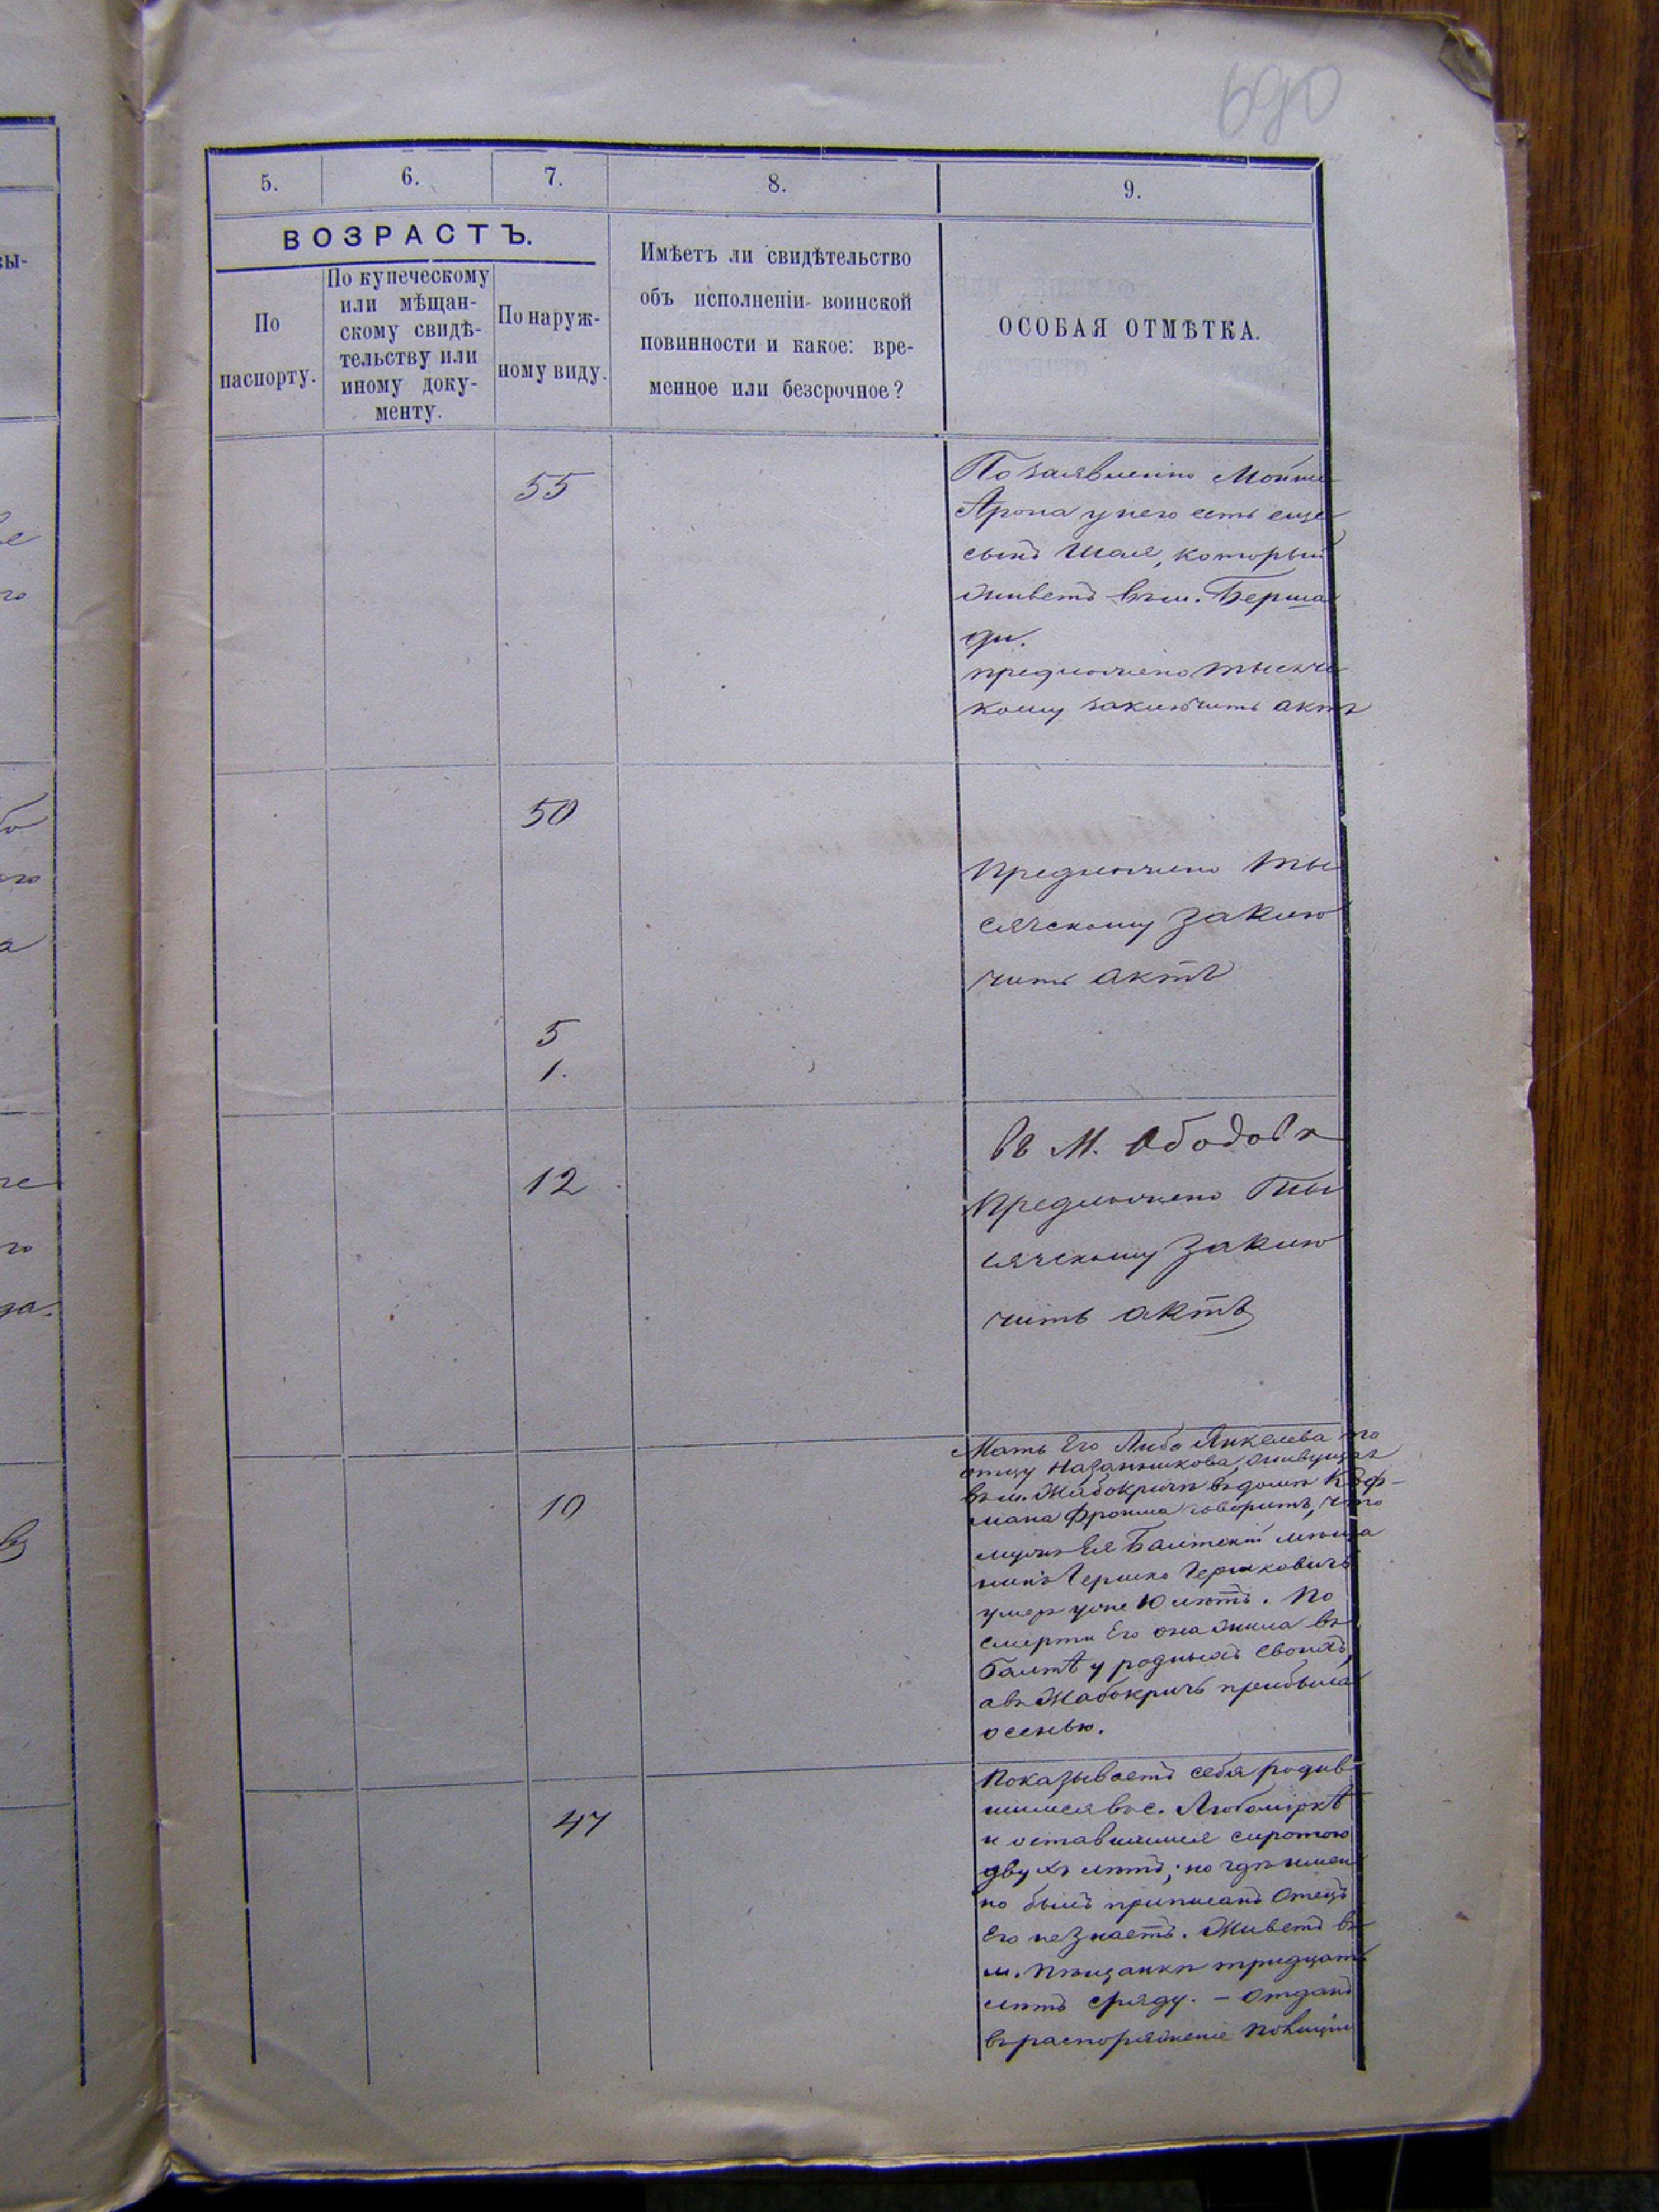 690
5. 6. 7. 8. 9.
ВОЗРАСТЪ.
По
паспорту.
По купеческому
или мѣщан-
скому свидѣ-
тельству или
иному доку-
менту.
По наруж-
ному виду.
Имѣетъ ли свидѣтельство
объ исполненіи воинской
повинности и какое: вре-
менное или безсрочное?
ОСОБАЯ ОТМѢТКА.
55
По заявленію Мойши
Арона у него есть еще
сынъ Шая, который
живетъ въ м. Берша
ди.
предложено тысячс
кому заключить актъ
50
Предложено ты
сячскому заклю
чить актъ
5
1.
въ М. Ободовк
12
Предложено ты
сячскому заклю
чить актъ
10
Мать Его Либа Янкелева по
отцу живущая
въ м. Жабокричъ въ домѣ Коф-
мана Фроима говоритъ, что
мужъ Ея Балтскій мѣща
нинъ Гершко Гершковичъ
умеръ уже 10 лѣтъ. По
смерти Его она жила въ
Балтѣ у родныхъ своихъ,
а въ Жабокричъ прибыла
осенью.
47
Показываетъ себя родив
шимся въ с. Любомiркѣ
и оставшимся сиротою
двухъ лѣтъ; но гдѣ имен
но былъ приписанъ Отецъ
Его не знаетъ. Живетъ въ
м. Пѣщанкѣ тридцать
лѣтъ сряду. – Отданъ
въ распоряженіе Полиціи